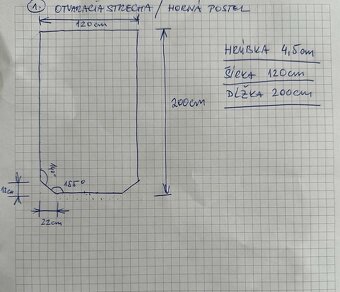 1. OTVARACIA STRECHA / HORNÁ POSTEL
120cm
HRÚBKA 4,5cm
ŠÍRKA 120cm
DĹŽKA 200cm
200cm
155°
12cm
22cm